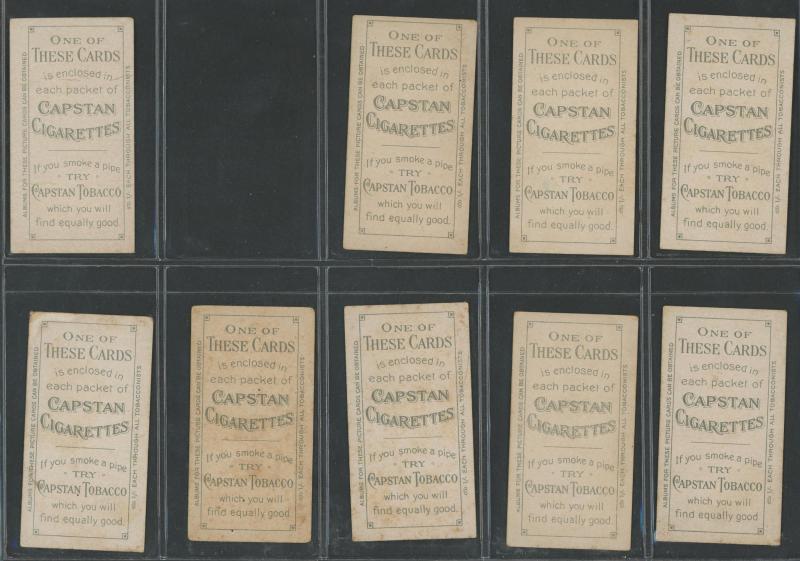 ONE OF
THESE CARDS
is enclosed in
each packet of
CAPSTAN
CIGARETTES
If you smoke a pipe
TRY
CAPSTAN TOBACCO
which you will
find equally good.
ALBUMS FOR THESE PICTURE CARDS CAN BE OBTAINED
1/- EACH THROUGH ALL TOBACCONISTS
ONE OF
THESE CARDS
is enclosed in
each packet of
CAPSTAN
CIGARETTES
If you smoke a pipe
TRY
CAPSTAN TOBACCO
which you will
find equally good.
ALBUMS FOR THESE PICTURE CARDS CAN BE OBTAINED
1/- EACH THROUGH ALL TOBACCONISTS
ONE OF
THESE CARDS
is enclosed in
each packet of
CAPSTAN
CIGARETTES
If you smoke a pipe
TRY
CAPSTAN TOBACCO
which you will
find equally good.
ALBUMS FOR THESE PICTURE CARDS CAN BE OBTAINED
1/- EACH THROUGH ALL TOBACCONISTS
ONE OF
THESE CARDS
is enclosed in
each packet of
CAPSTAN
CIGARETTES
If you smoke a pipe
TRY
CAPSTAN TOBACCO
which you will
find equally good.
ALBUMS FOR THESE PICTURE CARDS CAN BE OBTAINED
1/- EACH THROUGH ALL TOBACCONISTS
ONE OF
THESE CARDS
is enclosed in
each packet of
CAPSTAN
CIGARETTES
If you smoke a pipe
TRY
CAPSTAN TOBACCO
which you will
find equally good.
ALBUMS FOR THESE PICTURE CARDS CAN BE OBTAINED
1/- EACH THROUGH ALL TOBACCONISTS
ONE OF
THESE CARDS
is enclosed in
each packet of
CAPSTAN
CIGARETTES
If you smoke a pipe
TRY
CAPSTAN TOBACCO
which you will
find equally good.
ALBUMS FOR THESE PICTURE CARDS CAN BE OBTAINED
1/- EACH THROUGH ALL TOBACCONISTS
ONE OF
THESE CARDS
is enclosed in
each packet of
CAPSTAN
CIGARETTES
If you smoke a pipe
TRY
CAPSTAN TOBACCO
which you will
find equally good.
ALBUMS FOR THESE PICTURE CARDS CAN BE OBTAINED
1/- EACH THROUGH ALL TOBACCONISTS
ONE OF
THESE CARDS
is enclosed in
each packet of
CAPSTAN
CIGARETTES
If you smoke a pipe
TRY
CAPSTAN TOBACCO
which you will
find equally good.
ALBUMS FOR THESE PICTURE CARDS CAN BE OBTAINED
1/- EACH THROUGH ALL TOBACCONISTS
ONE OF
THESE CARDS
is enclosed in
each packet of
CAPSTAN
CIGARETTES
If you smoke a pipe
TRY
CAPSTAN TOBACCO
which you will
find equally good.
ALBUMS FOR THESE PICTURE CARDS CAN BE OBTAINED
1/- EACH THROUGH ALL TOBACCONISTS